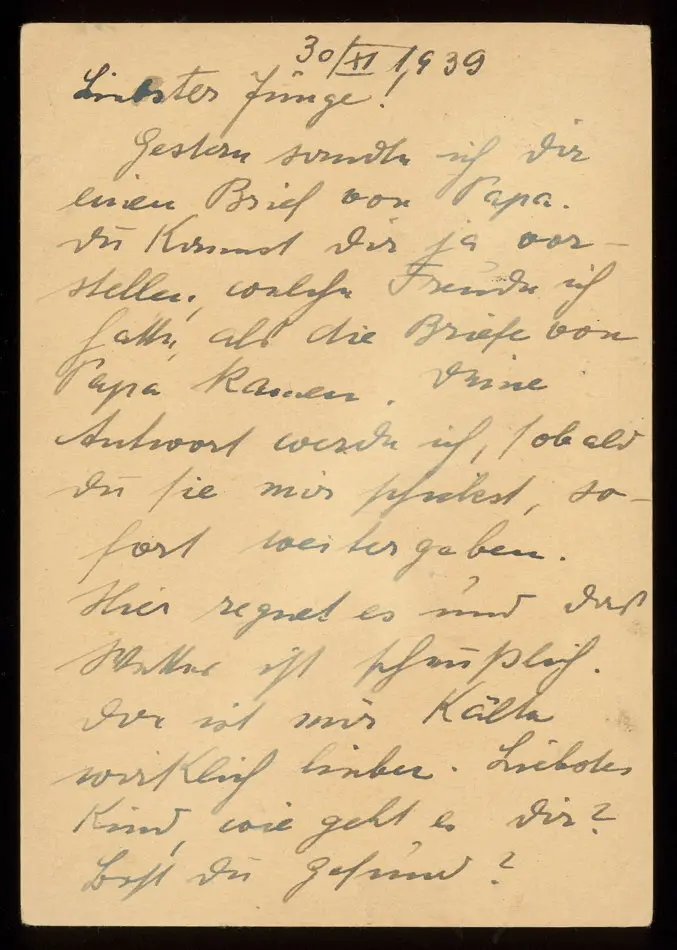 30/XI 1939
Liebster Junge!
Gestern sandte ich Dir
einen Brief von Papa.
Du kannst Dir ja vor-
stellen, welche Freude ich
hatte, als die Briefe von
Papa kamen. Deine
Antwort werde ich, sobald
du sie mir schickst, so-
fort weitergeben.
Hier regnet es und das
Wetter ist scheußlich.
Da ist mir Kälte
wirklich lieber. Liebstes
Kind, wie geht es Dir?
Bist Du gesund?